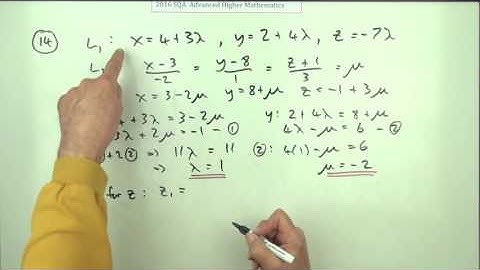 2016 SQA Advanced Higher Mathematics
14 L₁: x = 4+3λ , y = 2+4λ , z = -7λ
x-3/-2 = y-8/1 = z+1/3 = μ
x = 3-2μ y = 8+μ z = -1+3μ
+3λ = 3-2μ y: 2+4λ = 8+μ
3λ+2μ = -1 - ① 4λ-μ = 6 - ②
+2② ⇒ 11λ = 11 ②: 4(1)-μ = 6
⇒ λ = 1 μ = -2
for z: z₁ =